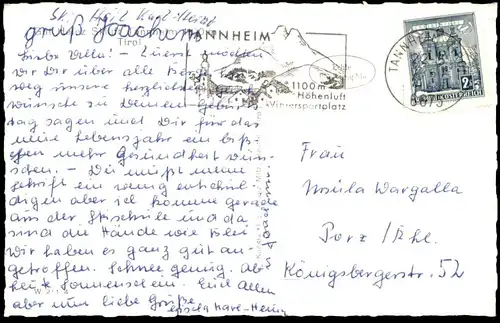 gruß Joachim
Tirol
TANNHEIM
1100 m
Höhenluft
Wintersportplatz
TANNHEIM
6675
2.-
REPUBLIK ÖSTERREICH
Liebe Ulla! - Zuerst möchten
wir Dir über alle Berge
weg unsere herzlichsten
wünsche zu Deinem Geburts
tag sagen und Dir für das
neue Lebensjahr ein biß-
chen mehr Gesundheit wün-
schen. - Du mußt meine
schrift ein wenig entschul-
digen aber ich komme gerade
aus der Skischule und da
sind die Hände wie Blei
Wir haben es ganz gut an-
getroffen. Schnee genug. Ab
heute Sonnenschein. Euch Allen
aber nun liebe Grüße
Gisela Karl-Heinz
Frau
Ursula Wargalla
Porz/Rhl.
Königsbergerstr. 52